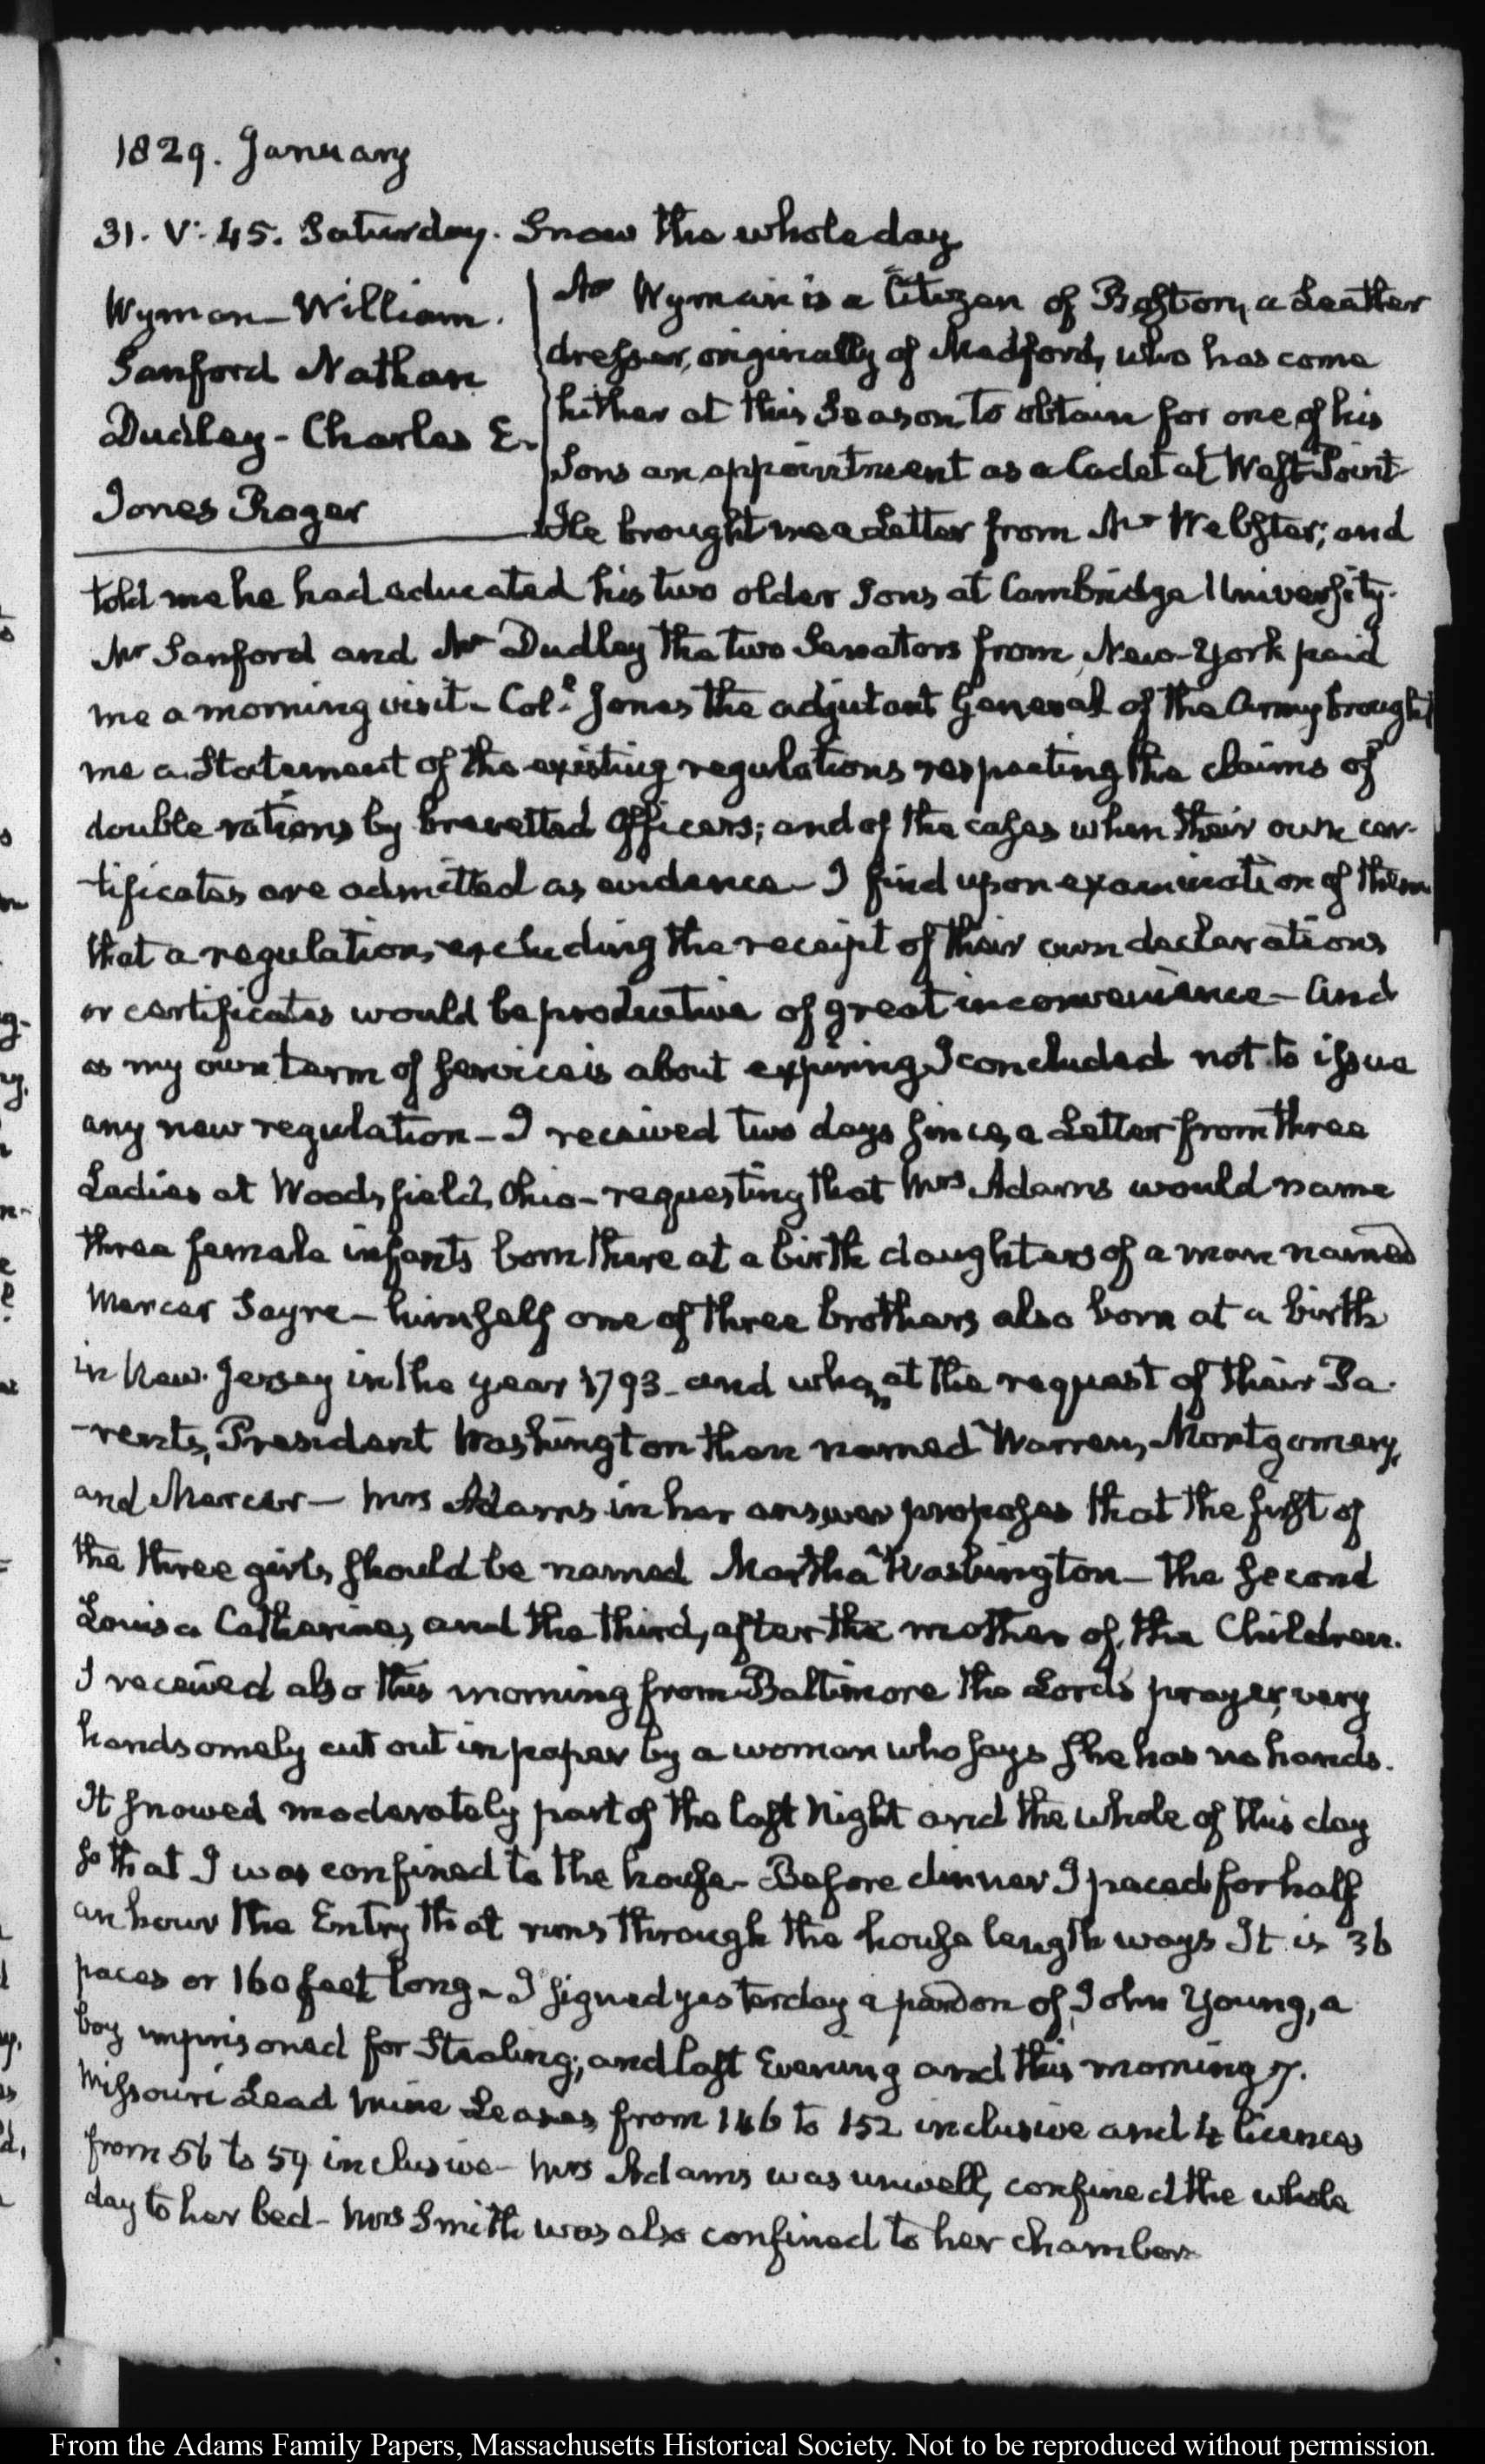 1829. January
31. V: 45. Saturday. Snow the whole day
Wyman - William.
Sanford Nathan
Dudley - Charles E.
Jones Roger
Mr Wyman is a Citizen of Boston, a Leather
dresser, originally of Medford, who has come
hither at this Season to obtain for one of his
Sons an appointment as a Cadet at West-Point
He brought me a Letter from Mr Webster; and
told me he had educated his two older Sons at Cambridge University.
Mr Sanford and Mr Dudley the two Senators from New-York paid
me a morning visit - Coll. Jones the adjutant General of the Army brought
me a Statement of the existing regulations respecting the claims of
double rations by brevetted Officers; and of the cases when their own cer-
tificates are admitted as evidence - I find upon examination of them
that a regulation, excluding the receipt of their own declarations
or certificates would be productive of great inconvenience - And
as my own term of service is about expiring I concluded not to issue
any new regulation - I received two days since, a Letter from three
Ladies at Woodsfield, Ohio - requesting that Mrs Adams would name
three female infants born there at a birth daughters of a man named
Mercer Sayre - himself one of three brothers also born at a birth
in New-Jersey in the year 1793 - and whom, at the request of their Pa-
-rents, President Washington then named Warren, Montgomery,
and Mercer - Mrs Adams in her answer proposes that the first of
the three girls should be named Martha Washington - the second
Louisa Catherine, and the third, after the mother of the Children.
I received also this morning from Baltimore the Lord's prayer, very
handsomely cut out in paper by a woman who says she has no hands.
It snowed moderately part of the last Night and the whole of this day
so that I was confined to the house - Before dinner I paced for half
an hour the Entry that runs through the house lengthways It is 36
paces or 160 feet long - I signed yesterday a pardon of John Young, a
boy imprisoned for Stealing; and last Evening and this morning 7.
Missouri Lead Mine Leases from 146 to 152 inclusive and 4 licences
from 56 to 59 inclusive - Mrs Adams was unwell, confined the whole
day to her bed - Mrs Smith was also confined to her chamber
From the Adams Family Papers, Massachusetts Historical Society. Not to be reproduced without permission.